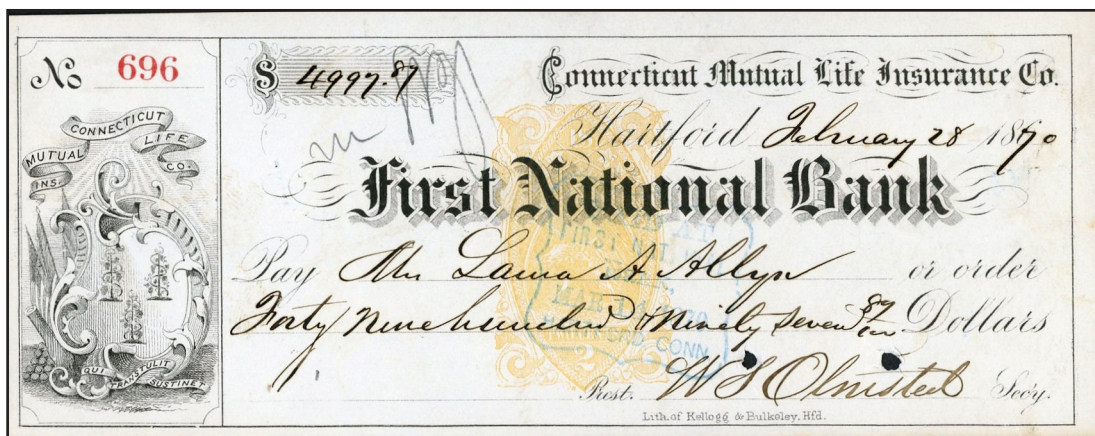 No 696
CONNECTICUT
MUTUAL LIFE
INS. CO.
QUI TRANSTULIT SUSTINET
$ 4997.87
Connecticut Mutual Life Insurance Co.
Hartford February 28 1870
First National Bank
FIRST NAT.
MAR 1870
HARTFORD CONN
Pay Mrs Laura A Allyn or order
Forty Nine hundred & Ninety Seven 87/100 Dollars
Prest. W S Olmsted Secy.
Lith. of Kellogg & Bulkeley, Hfd.